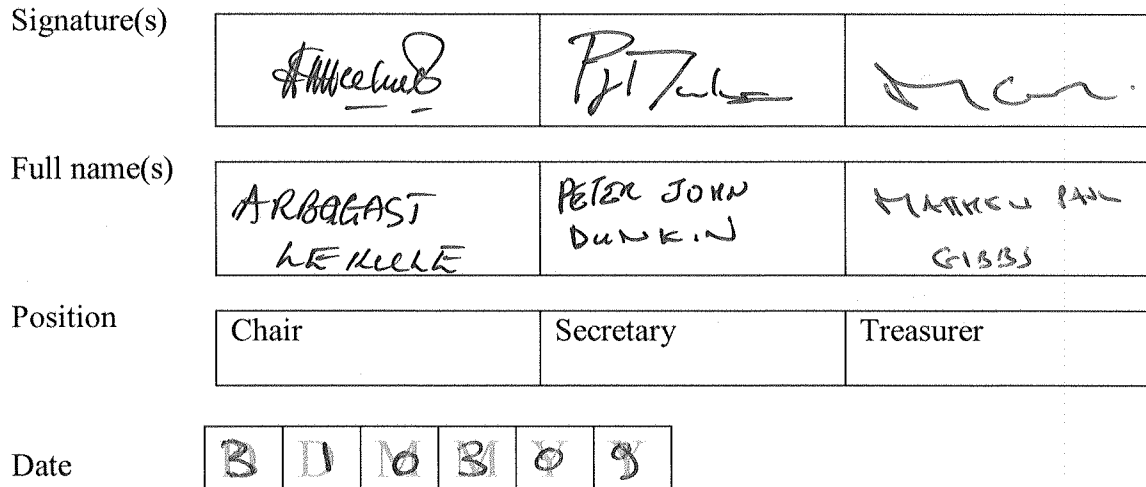 Signature(s)
Full name(s)
ARBOGAST
PETER JOHN
DUNKIN
MATTHEW PAUL
GIBBS
Position
Chair
Secretary
Treasurer
Date
3 1 0 3 0 9